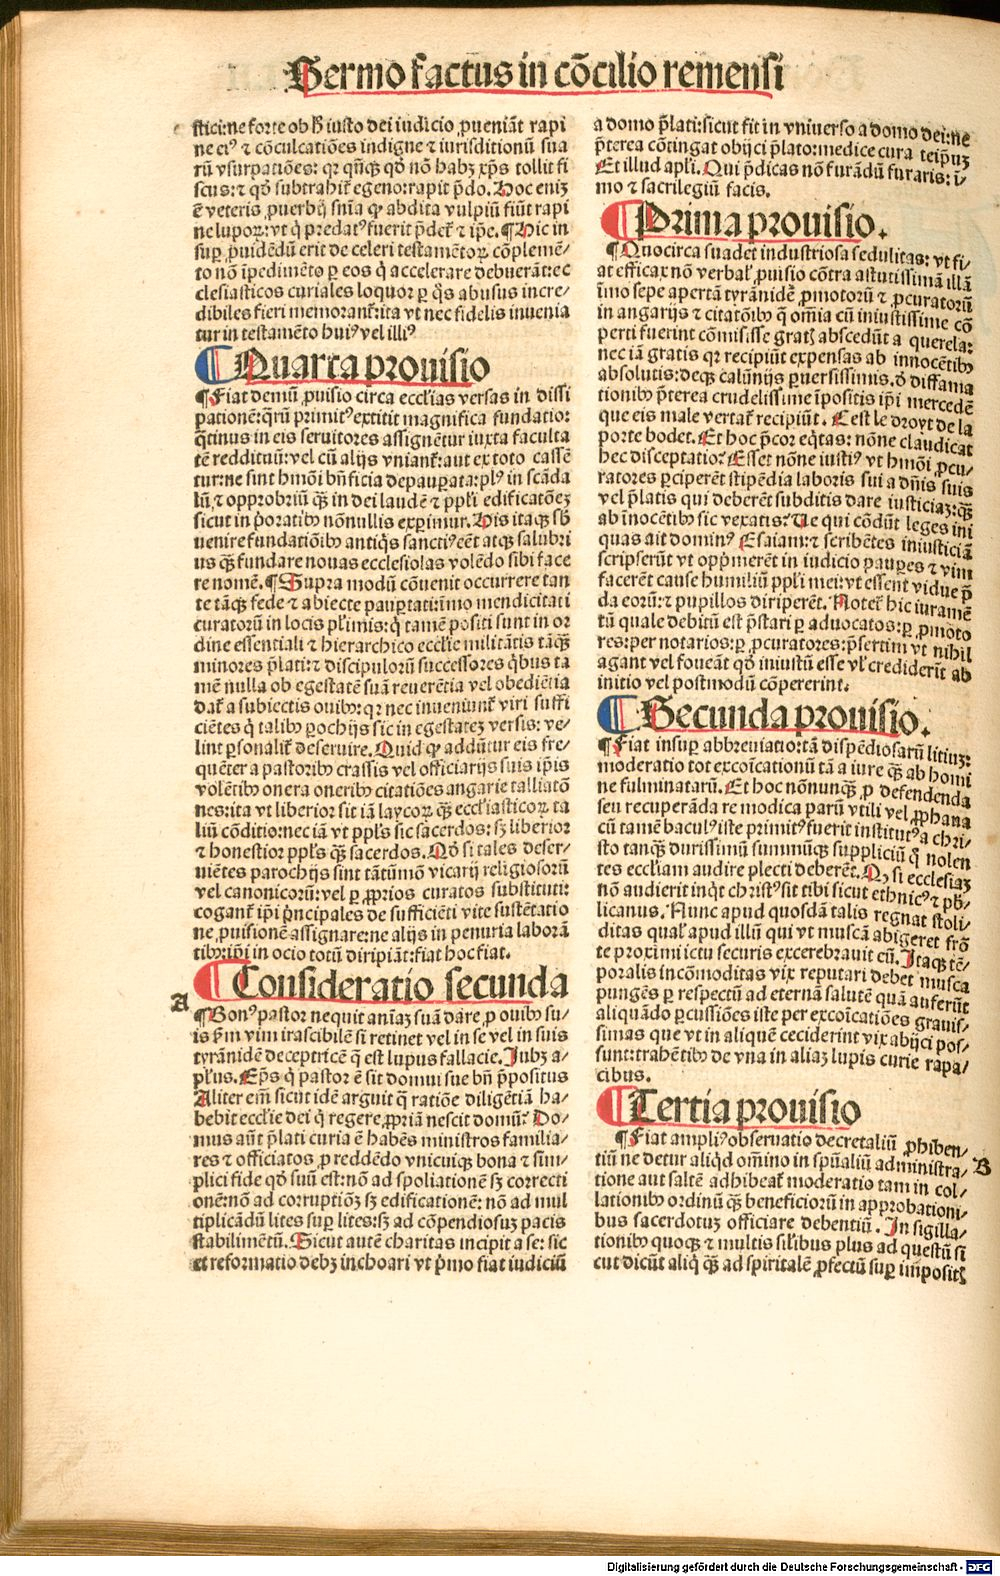 Sermo factus in cōcilio remensi
stici:ne forte ob B iusto dei iudicio ꝓueniāt rapi
ne eiꝰ ⁊ cōculcatiōes indigne ⁊ iurisditionū sua
rū vsurpatiōes: qꝛ qn̄cꝗ qď nō habꝫ xp̄s tollit fi
scus: ⁊ qď subtrahit̄ egeno: rapit p̄do. Hoc enīꝫ
ē veteris ꝓuerbij sn̄ia ꝙ abdita vulpiū fiūt rapi
ne lupoꝝ: vt q̇ predatꝰ fuerit p̄det̄ ⁊ ip̄e. ¶ Hic in
suꝑ ꝓuidēdū erit de celeri testamētoꝝ cōplemē-
to nō īpedimēto ꝑ eos q̇ accelerare debuerāt: ec
clesiasticos curiales loquor ꝑ q̇s abusus incre-
dibiles fieri memorant̄: ita vt nec fidelis inuenia
tur in testamēto huiꝰ vel illiꝰ
¶ Quarta prouisio
¶ Fiat demū ꝓuisio circa ecclīas versas in dissi
pationē: qrū primitꝰ extitit magnifica fundatio:
q̄tinus in eis seruitores assignētur iuxta faculta
tē reddituū: vel cū alijs vniant̄: aut ex toto cassē
tur: ne sint hmōi bn̄ficia depauꝑata: plꝰ in scāda
lū ⁊ opprobriū qꝫ in dei laudē ⁊ ppl̄i edificatōeꝫ
sicut in ṗoratibꝫ nōnullis exꝑimur. His itaqꝫ sb
uenire fundatiōibꝫ antiq̇s sanctiꝰ eēt atqꝫ salubri
us qꝫ fundare nouas ecclesiolas volēdo sibi face
re nomē. ¶ Supra modū cōuenit occurrere tan
te tāqꝫ fede ⁊ abiecte pauꝑtati: īmo mendicitati
curatorū in locis pl̄imis: q̇ tamē positi sunt in or
dine essentiali ⁊ hierarchico ecclīe militātis tāqꝫ
minores p̄lati: ⁊ discipulorū successores q̇bus ta
mē nulla ob egestatē suā reuerētia vel obediētia
dat̄ a subiectis ouibꝫ: qꝛ nec inueniunt̄ viri suffi
ciētes q̇ talibꝫ ꝑochijs sic in egestateꝫ versis: ve-
lint ꝑsonalit̄ deseruire. Quid ꝙ addūtur eis fre-
quēter a pastoribꝫ crassis vel officiarijs suis ip̄is
volētibꝫ onera oneribꝫ citatiōes angarie talliatō
nes: ita vt liberior sit iā laycoꝝ qꝫ ecclīasticoꝝ ta
liū cōditio: nec iā vt ppl̄s sic sacerdos: sꝫ liberior
⁊ honestior ppl̄s qꝫ sacerdos. Qď si tales deser-
uiētes parochijs sint tātūmō vicarij religiosorū
vel canonicorū: vel ꝑ ꝓprios curatos substituti:
cogant̄ ip̄i ṗncipales de sufficiēti vite sustētatio
ne ꝓuisionē assignare: ne alijs in penuria laborā
tibꝰ: ip̄i in ocio totū diripiāt: fiat hoc fiat.
¶ Consideratio secunda
A
¶ Bonꝰ pastor nequit anīaꝫ suā dare ꝓ ouibꝫ su-
is p̄m vim irascibilē si retinet vel in se vel in suis
tyrānidē deceptricē q̄ est lupus fallacie. Iubꝫ a-
pl̄us. Ep̄s q̇ pastor ē sit domui sue bn̄ p̄positus
Aliter em̄ sicut idē arguit q̄ ratiōe diligētiā ha-
bebit ecclīe dei q̇ regere ꝓpriā nescit domū? Do-
mus aūt p̄lati curia ē habēs ministros familia-
res ⁊ officiatos ꝓ reddēdo vnicuiqꝫ bona ⁊ sim-
plici fide qď suū est: nō ad spoliationē sꝫ correcti
onē: nō ad corruptiōꝫ sꝫ edificationē: nō ad mul
tiplicādū lites suꝑ lites: sꝫ ad cōpendiosuꝫ pacis
stabilimētū. Sicut autē charitas incipit a se: sic
et reformatio debꝫ inchoari vt ṗmo fiat iudiciū
a domo p̄lati: sicut fit in vniuerso a domo dei: ne
p̄terea cōtingat obijci p̄lato: medice cura teip̄uꝫ
Et illud apl̄i. Qui p̄dicas nō furādū furaris: ī-
mo ⁊ sacrilegiū facis.
¶ Prima prouisio.
¶ Quocirca suadet industriosa sedulitas: vt fi-
at efficax nō verbal̄ ꝓuisio cōtra astutissimā illā
īmo sepe apertā tyrānidē ꝓmotorū ⁊ ꝓcuratorū
in angarijs ⁊ citatōibꝫ q̄ om̄ia cū iniustissime cō
perti fuerint cōmisisse gratꝭ abscedūt a querela:
nec iā gratis qꝛ recipiūt expensas ab innocētibꝫ
absolutis: deqꝫ calūnijs ꝑuersissimis. ď diffama
tionibꝫ p̄terea crudelissime īpositis ip̄i mercedē
que eis male vertat̄ recipiūt. C est le droyt de la
porte bodet. Et hoc p̄cor eq̇tas: nōne claudicat
hec disceptatio? Esset nōne iustiꝰ vt hmōi ꝓcu-
ratores ꝑciperēt stipēdia laboris sui a dn̄is suis
vel p̄latis qui deberēt subditis dare iusticiaꝫ: qꝫ
ab īnocētibꝫ sic vexatis? Ue qui cōdūt leges ini
quas ait dominꝰ Esaiam: ⁊ scribētes iniusticiā
scripserūt vt opp̄merēt in iudicio pauꝑes ⁊ vim
facerēt cause humiliū ppl̄i mei: vt essent vidue p̄
da eorū: ⁊ pupillos diriperēt. Notet̄ hic iuramē
tū quale debitū est p̄stari ꝑ aduocatos: ꝑ ꝓmoto
res: per notarios: ꝑ ꝓcuratores: p̄sertim vt nihil
agant vel foueāt qď iniustū esse vl̄ crediderīt ab
initio vel postmodū cōpererint.
¶ Secunda prouisio.
¶ Fiat insuꝑ abbreuiatio: tā dispēdiosarū litiuꝫ:
moderatio tot excoīcationū tā a iure qꝫ ab homi
ne fulminatarū. Et hoc nōnunqꝫ ꝓ defendenda
seu recuperāda re modica parū vtili vel ꝓphana
cū tamē baculꝰ iste primitꝰ fuerit institutꝰ a chri-
sto tanqꝫ durissimū summūqꝫ suppliciū q̇ nolen
tes ecclīam audire plecti deberēt. Qꝫ si ecclesiaꝫ
nō audierit inq̇t christꝰ sit tibi sicut ethnicꝰ ⁊ pb-
licanus. Nunc apud quosdā talis regnat stoli-
ditas qual̄ apud illū qui vt muscā abigeret frō
te proximi ictu securis excerebrauit eū. Itaqꝫ tē-
poralis incōmoditas vix reputari debet musca
pungēs ꝑ respectū ad eternā salutē quā auferūt
aliquādo ꝑcussiōes iste per excoīcatiōes grauis-
simas que vt in aliquē ceciderint vix abijci pos-
sunt: trahētibꝫ de vna in aliaꝫ lupis curie rapa-
cibus.
¶ Tertia prouisio
¶ Fiat ampliꝰ obseruatio decretaliū ꝓhiben-
B
tiū ne detur aliq̇d om̄ino in spūaliū administra-
tione aut saltē adhibeat̄ moderatio tam in col-
lationibꝫ ordinū qꝫ beneficiorū in approbationi-
bus sacerdotuꝫ officiare debentiū. In sigilla-
tionibꝫ quoqꝫ ⁊ multis sil̄ibus plus ad questū si
cut dicūt aliq̇ qꝫ ad spiritalē ꝓfectū suꝑ impositꝭ
Digitalisierung gefördert durch die Deutsche Forschungsgemeinschaft - DFG